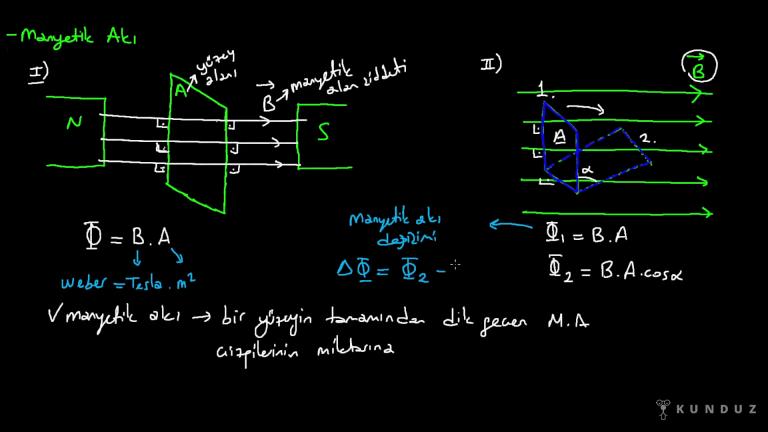 - Manyetik Akı
I)
A yüzey alanı
B → manyetik alan şiddeti
N
S
Φ = B.A
weber = Tesla.m²
II)
B
1.
A
2.
α
Φ₁ = B.A
Φ₂ = B.A.cosα
Manyetik akı
değişimi
ΔΦ = Φ₂ -
√ manyetik akı → bir yüzeyin tamamından dik geçen M.A
çizgilerinin miktarına
KUNDUZ